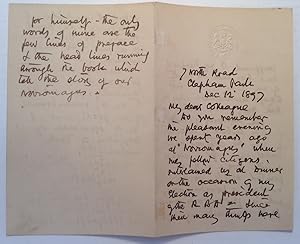 for himself – the only
words of mine are the
few lines of preface
& the head lines running
through the book which
tell the story of our
7 North Road
Clapham Park
Dec 12th 1897
My dear Colleague
Do you remember
the pleasant evening
we spent years ago
at when
my fellow citizens
entertained us at dinner
on the occasion of my
election as president
of the R B A – since
then many things have